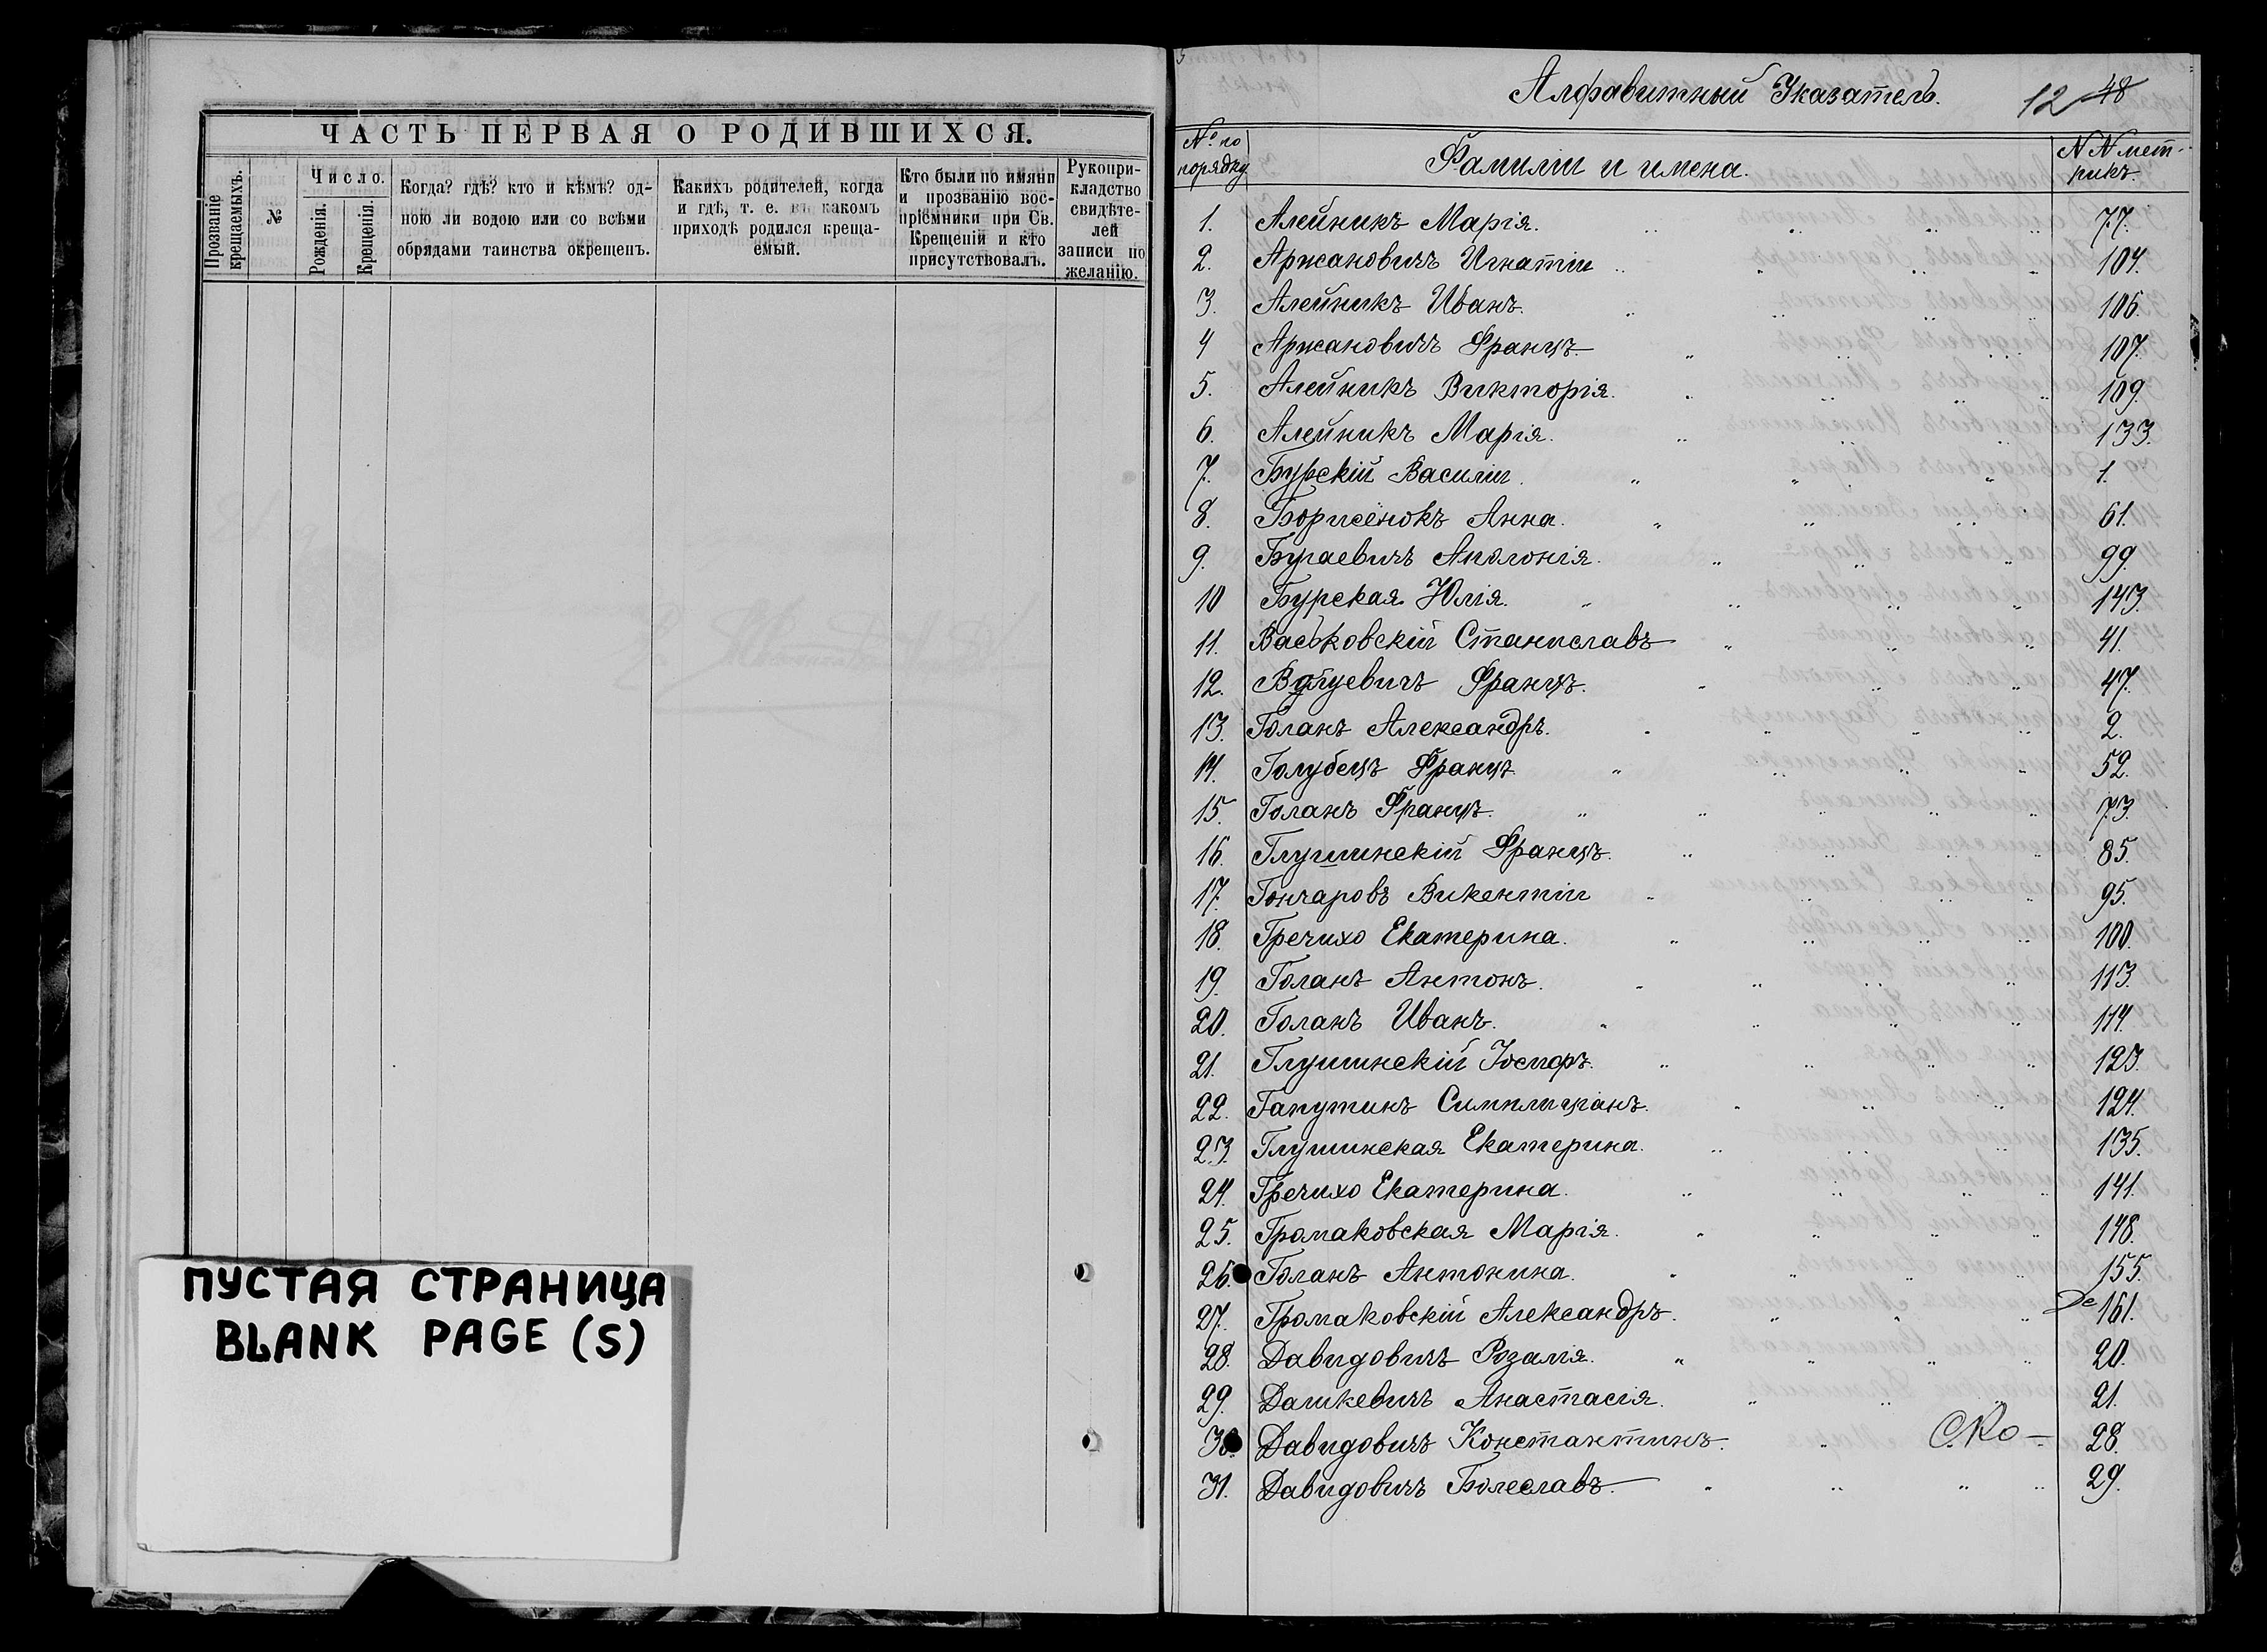 ЧАСТЬ ПЕРВАЯ О РОДИВШИХСЯ.
Прозваніе крещаемыхъ.
№
Число.
Рожденія.
Крещенія.
Когда? гдѣ? кто и кѣмъ? од-
ною ли водою или со всѣми
обрядами таинства окрещенъ.
Какихъ родителей, когда
и гдѣ, т. е. въ какомъ
приходѣ родился креща-
емый.
Кто были по имяни
и прозванію вос-
пріемники при Св.
Крещеніи и кто
присутствовалъ.
Рукопри-
кладство
свидѣте-
лей
записи по
желанію.
ПУСТАЯ СТРАНИЦА
BLANK PAGE (S)
Алфавитный Указатель.
12 48
№ по порядку
Фамиліи и имена.
NN мет-
рикъ.
1. Алейникъ Марія. 77.
2. Аржановичъ Игнатій 104.
3. Алейникъ Иванъ. 106.
4 Аржановичъ Францъ. 107.
5. Алейникъ Викторія. 109.
6. Алейникъ Марія. 133.
7. Бурскій Василій. 1.
8. Борисёнокъ Анна. 61.
9. Бугаевичъ Аполонія. 99.
10 Бурская Юлія. 143.
11. Васьковскій Станиславъ 41.
12. Францъ. 47.
13. Голанъ Александръ. 2.
14. Голубецъ Францъ 52.
15. Голанъ Францъ. 73.
16. Глушинскій Францъ. 85.
17. Гончаровъ Викентій 95.
18. Гречихо Екатерина. 100.
19. Голанъ Антонъ. 113.
20. Голанъ Иванъ. 114.
21. Глушинскій Іосифъ. 123.
22. Гапутинъ Симплиціанъ. 124.
23. Глушинская Екатерина. 135.
24. Гречихо Екатерина. 141.
25. Громаковская Марія. 148.
26. Голанъ Антонина. 155.
27. Громаковскій Александръ. 161.
28. Давидовичъ Розалія. 20.
29. Дашкевичъ Анастасія. 21.
30. Давидовичъ Константинъ. 28.
31. Давидовичъ Болеславъ. 29.